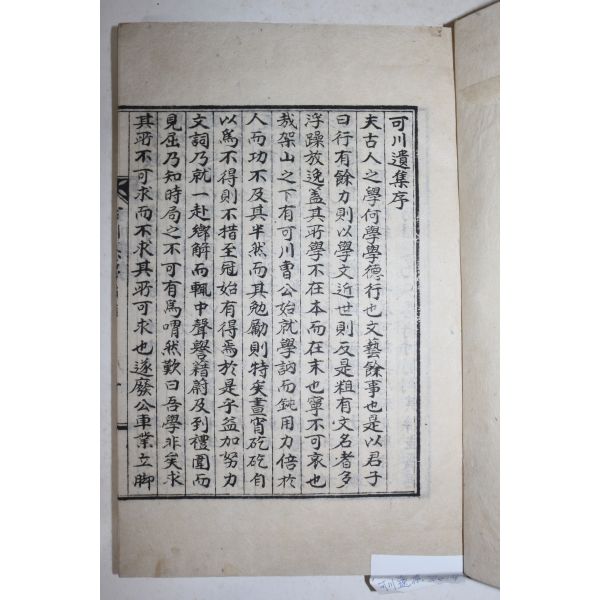 可川遺集序
夫古人之學何學學德行也文藝餘事也是以君子
曰行有餘力則以學文近世則反是粗有文名者多
浮躁放逸盖其所學不在本而在末也寧不可哀也
哉架山之下有可川曺公始就學訥而鈍用力倍於
人而功不及其半然而其勉勵則特矣晝宵矻矻自
以爲不得則不措至冠始有得焉於是乎益加努力
文詞乃就一赴鄕解而輒中聲譽藉蔚及到禮圍而
見屈乃知時局之不可有爲喟然歎曰吾學非矣求
其所不可求而不求其所可求也遂廢公車業立脚